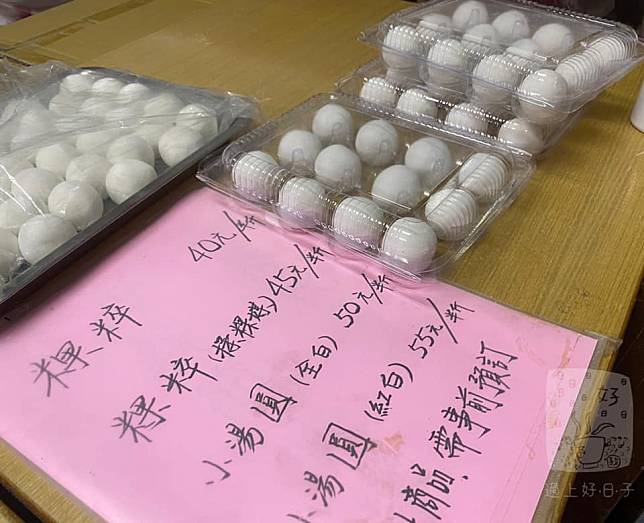 粿粹 40元/斤
粿粹(搡粿粹)45元/斤
小湯圓(全白)50元/斤
小湯圓(紅白)55元/斤
商品.需事前預訂
好
過上好·日·子